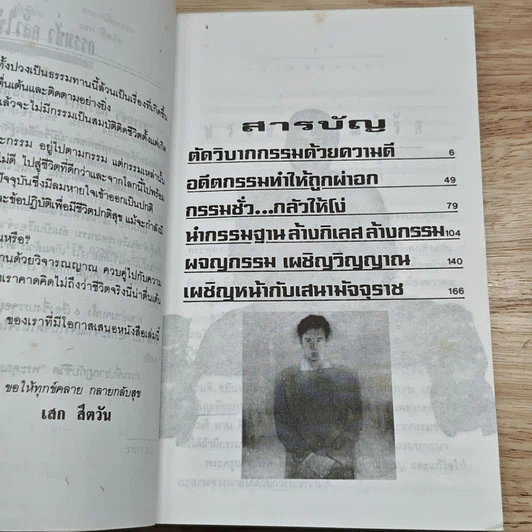 ทั้งปวงเป็นธรรมทานนี้ล้วนเป็นเรื่องที่เกิดขึ้น
ตื่นเต้นและติดตามอย่างยิ่ง
แล้วจะไม่มีกรรมเป็นสมบัติติดชีวิตตั้งแต่เกิด
ะกรรม อยู่ไปตามกรรม แต่กรรมเหล่านั้น
ไม่ดี ไปสู่ชีวิตที่ดีกว่าและจากโลกนี้ไปพร้อม
ปัจจุบันซึ่งมีลมหายใจเข้าออกเป็นปกติ
ะข้อปฏิบัติเพื่อมีชีวิตปกติสุข แม้จะกำลังมี
นหรือ?
านด้วยวิจารณญาณ ควบคู่ไปกับความ
เราคาดคิดไม่ถึงว่าชีวิตจริงนี้น่าตื่นเต้น
ของเราที่มีโอกาสเสนอหนังสือเล่มนี้
ขอให้ทุกข์คลาย กลายกลับสุข
เสก สีตวัน
สารบัญ
ตัดวิบากกรรมด้วยความดี 6
อดีตกรรมทำให้ถูกผ่าอก 49
กรรมชั่ว...กลัวให้โง่ 79
นำกรรมฐาน ล้างกิเลส ล้างกรรม 104
ผจญกรรม เผชิญวิญญาณ 140
เผชิญหน้ากับเสนามัจจุราช 166